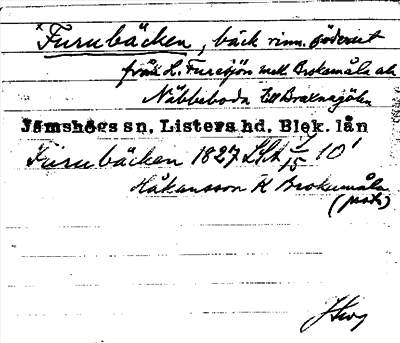 *Furubäcken, bäck rinn. söderut
från L. Furesjön mell. Brokamåla ah
Näbbeboda till Bräknesjön
Jämshögs sn, Listers hd, Blek. län
Furubäcken 1827 LSA 7/15 10'
Håkansson K Brokumåla
(prot.)